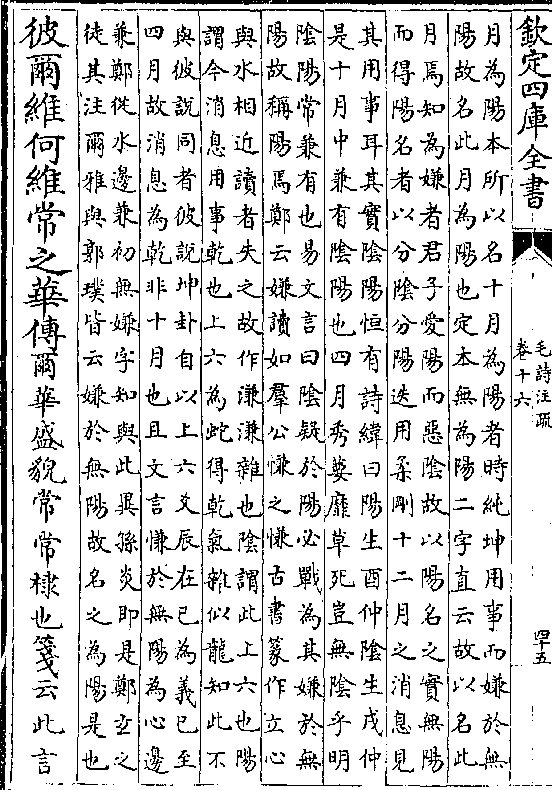 欽定四庫全書
毛詩注疏
卷十六
四十五
月為陽本所以名十月為陽者時純坤用事而嫌於無
陽故名此月為陽也定本無為陽二字直云故以名此
月焉知為嫌者君子愛陽而惡陰故以陽名之實無陽
而得陽名者以分陰分陽迭用柔剛十二月之消息見
其用事耳其實陰陽恒有詩緯曰陽生酉仲陰生戌仲
是十月中兼有陰陽也四月秀葽靡草死豈無陰乎明
陰陽常兼有也易文言曰陰疑於陽必戰為其嫌於無
陽故稱陽焉鄭云嫌讀如羣公慊之慊古書篆作立心
與水相近讀者失之故作溓溓雜也陰謂此上六也陽
謂今消息用事乾也上六為蛇得乾氣雜似龍知此不
與彼說同者彼說坤卦自以上六爻辰在巳為義巳至
四月故消息為乾非十月也且文言慊於無陽為心邊
兼鄭從水邊兼初無嫌字知與此異孫炎即是鄭玄之
徒其注爾雅與郭璞皆云嫌於無陽故名之為陽是也
彼爾維何維常之華傳爾華盛貌常常棣也箋云此言